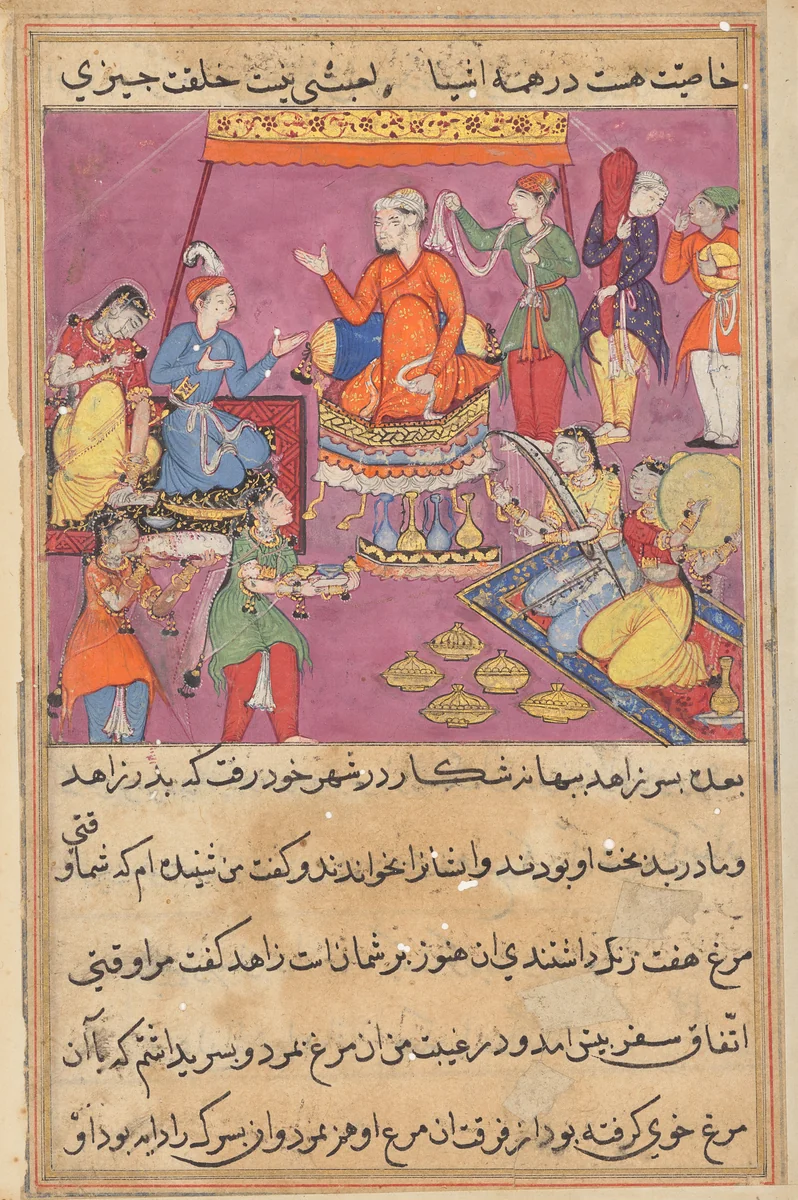 خاصیّت هست در همه اشیا لعبثی نیست خلقت چیزي
بعده بسر زاهد ببهانه شکار در شهر خود رفت که بدر زاهد
و مادر بدبخت او بودند و ایشانرا بخواندند و کفت من شنیده ام که شما وقتي
مرغ هفت رنك داشتندي ان هنوز بر شمان است زاهد کفت مرا وقتي
اتّفاق سفر بیش امد و در غیبت من ان مرغ بمرد و بسر یداشتم که با آن
مرغ خوي کرفته بود از فرقت ان مرع او هم بمرد و ان بسرك را دایه بود او